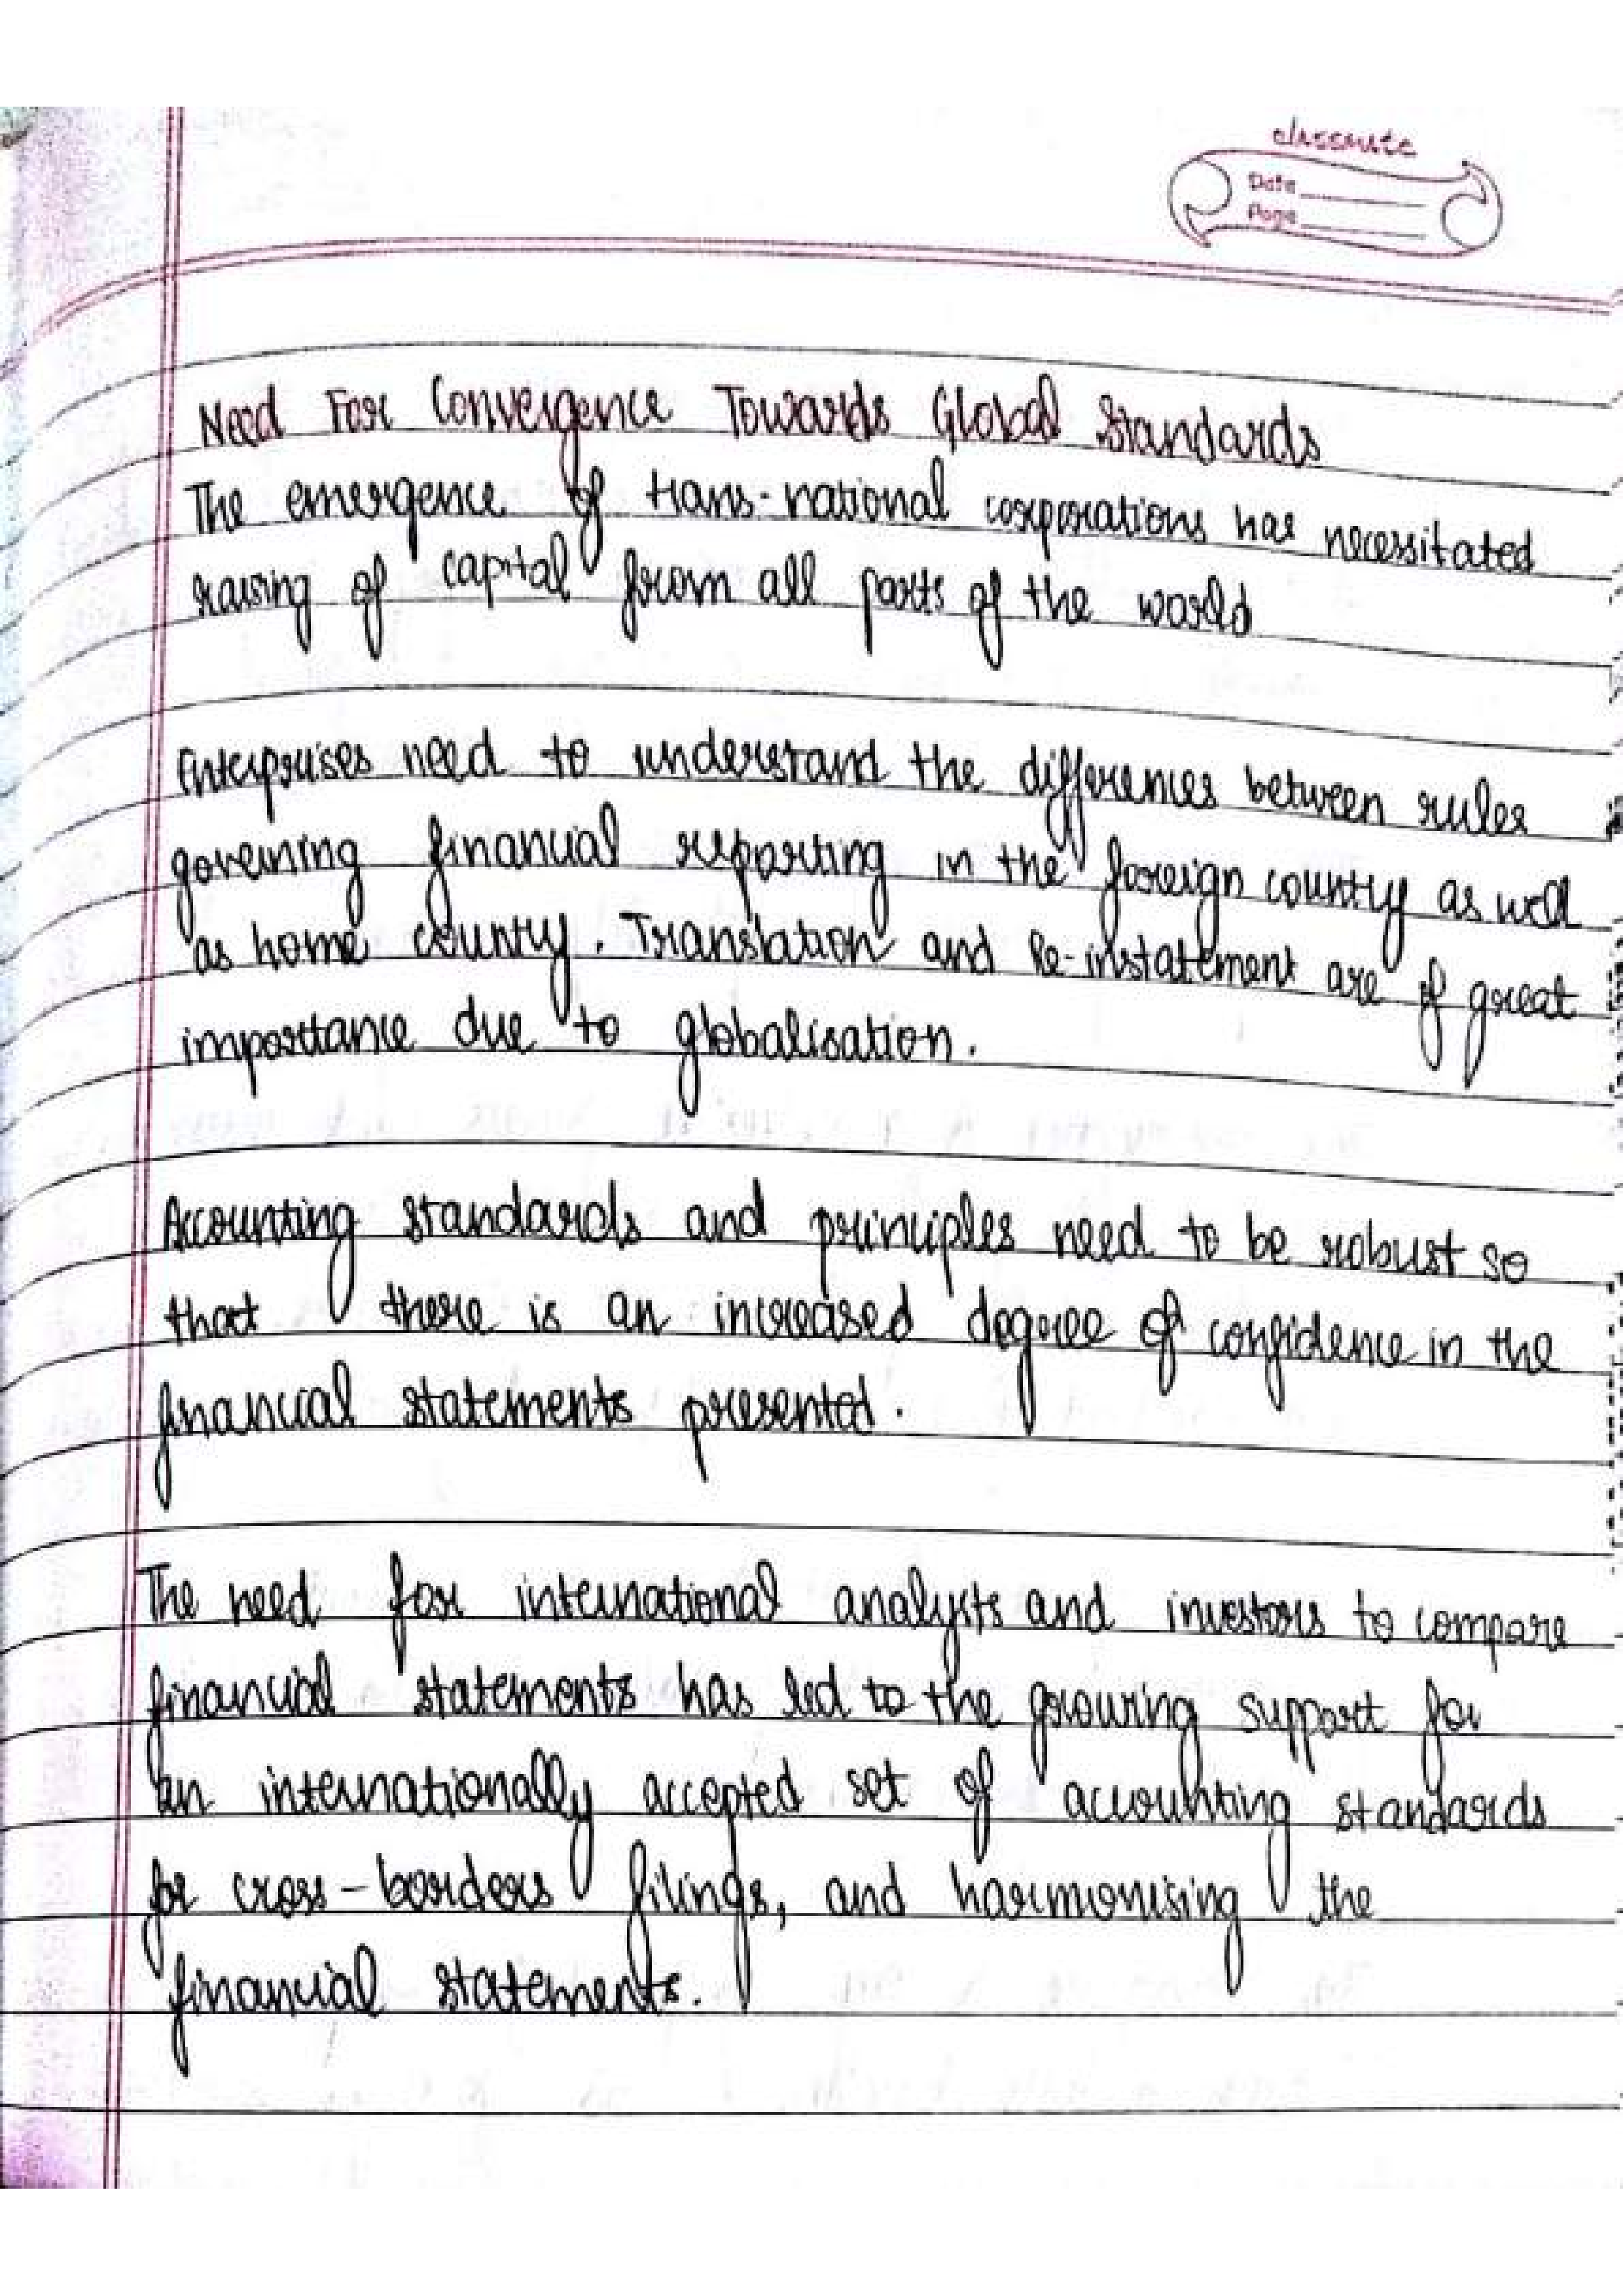 classmate
Date
Page
Need For Convergence Towards Global Standards
The emergence of trans-national corporations has necessitated
raising of capital from all parts of the world
Enterprises need to understand the differences between rules
governing financial reporting in the foreign country as well
as home country. Translation and Re-instatement are of great
importance due to globalisation.
Accounting standards and principles need to be robust so
that there is an increased degree of confidence in the
financial statements presented.
The need for international analysts and investors to compare
financial statements has led to the growing support for
an internationally accepted set of accounting standards
for cross-borders filings, and harmonising the
financial statements.